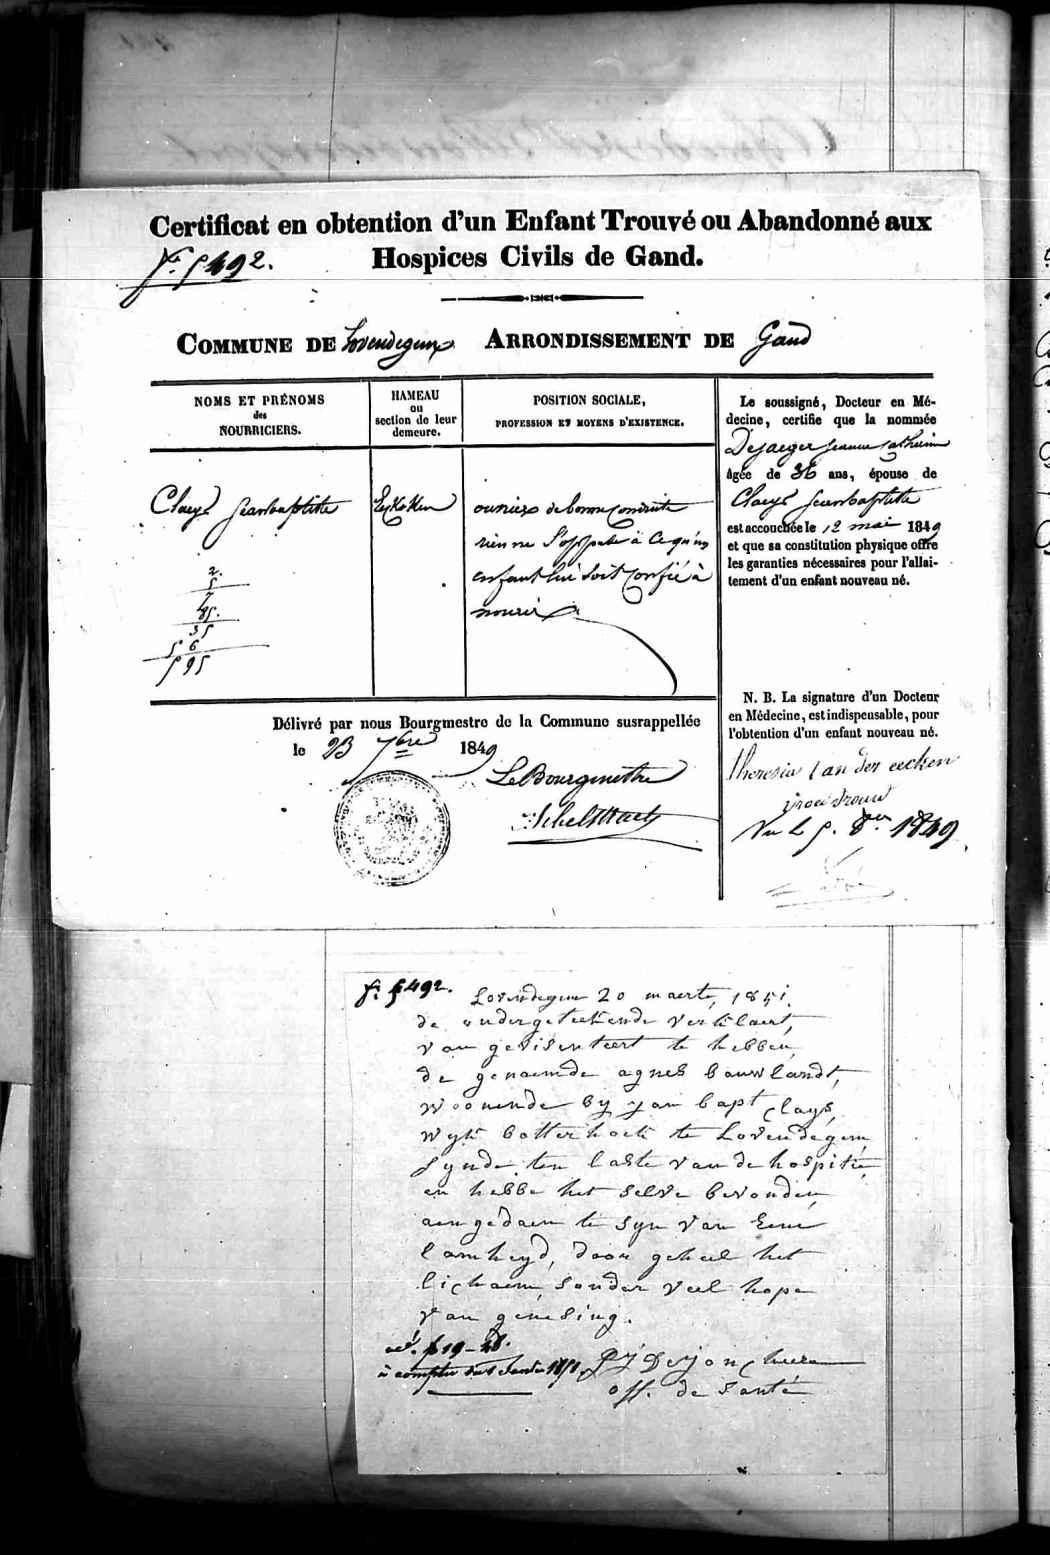 Certificat en obtention d'un Enfant Trouvé ou Abandonné aux
Hospices Civils de Gand.
f.° 5492.
COMMUNE DE Lovendegem ARRONDISSEMENT DE Gand
NOMS ET PRÉNOMS
des
NOURRICIERS.
HAMEAU
ou
section de leur
demeure.
POSITION SOCIALE,
PROFESSION ET MOYENS D'EXISTENCE.
Claeys Jeanbaptiste
ouvrier de bonne Conduite
rien ne S'oppose à Ce qu'un
enfant lui Soit Confié à
nourir
2.
5
85.
35
56
595
Le soussigné, Docteur en Mé-
decine, certifie que la nommée
Dejaeger Jeanne Catherine
âgée de 36 ans, épouse de
Claeys Jeanbaptiste
est accouchée le 12 mai 1849
et que sa constitution physique offre
les garanties nécessaires pour l'allai-
tement d'un enfant nouveau né.
N. B. La signature d'un Docteur
en Médecine, est indispensable, pour
l'obtention d'un enfant nouveau né.
Theresia Van der eecken
vroedvrouw
Vu le 5. 8bre 1849
Délivré par nous Bourgmestre de la Commune susrappellée
le 23 7bre 1849
Le Bourgmestre
f.° 5492.
Lovendegem 20 maerte, 1851.
de ondergeteekende verklaert,
van gevisenteert te hebben
de genaemde agnes bauwlandt,
woonende by jan bapt Clays,
wyk botterhoek te Lovendegem,
synde ten laste van de hospitie,
en hebbe het selve bevonden
aengedaen te syn van Eene
lamheyd, door geheel het
lichaem, sonder veel hope
van genesing.
à compter du 1 Janvier 1851.
off. de santé